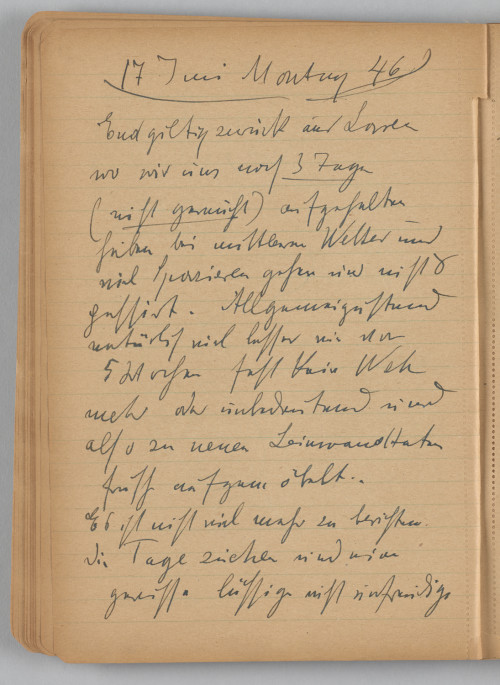 17 Juni Montag 46
Endgiltig zurück aus Laren
wo wir uns noch 3 Tage
(nicht geraucht) aufgehalten
haben bei mittlerem Wetter und
viel Spazieren gehen und nichts
passirt. Allgemeinzustand
natürlich viel besser wie vor
5 Wochen fast kein Weh
mehr oder unbedeutend und
also zu neuen Leinwandtaten
frisch aufgemöbelt..
Es ist nicht viel mehr zu berichten.
Die Tage ziehen und eine
gewisse lässige nicht unfreudige